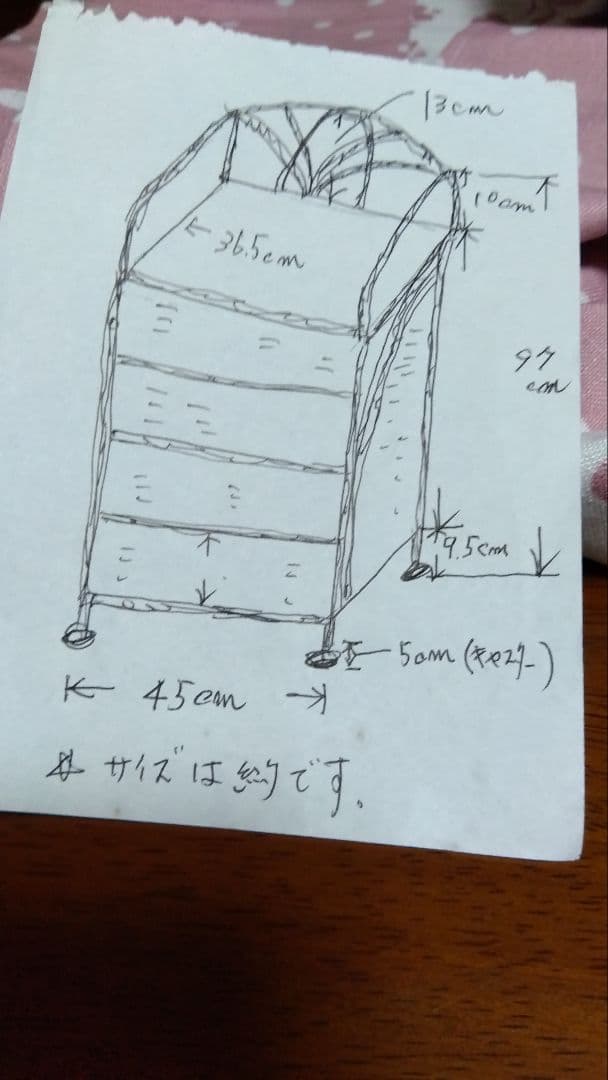 13cm
10cm
36.5cm
97
cm
9.5cm
5cm (キャスター)
45cm
サイズは約です。